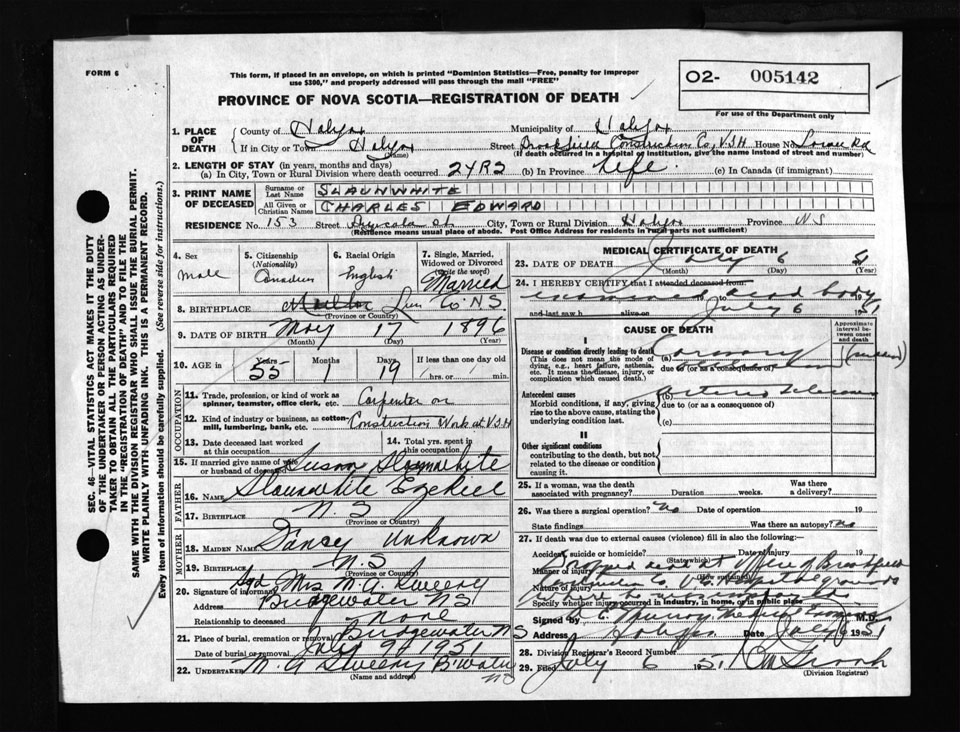 FORM 6
This form, if placed in an envelope, on which is printed "Dominion Statistics—Free, penalty for improper
use $300," and properly addressed will pass through the mail "FREE"
O2- 005142
For use of the Department only
PROVINCE OF NOVA SCOTIA—REGISTRATION OF DEATH
1. PLACE OF DEATH
County of Halifax Municipality of Halifax
If in City or Town Halifax (Name) Street Brookfield Construction Co, V.S.H House No.
(If death occurred in a hospital or institution, give the name instead of street and number)
2. LENGTH OF STAY (in years, months and days)
(a) In City, Town or Rural Division where death occurred 24 YRS (b) In Province Life (c) In Canada (if immigrant)
3. PRINT NAME OF DECEASED
Surname or Last Name SLAUNWHITE
All Given or Christian Names CHARLES EDWARD
RESIDENCE No. 153 Street St. City, Town or Rural Division Halifax Province N S
(Residence means usual place of abode. Post Office Address for residents in rural parts not sufficient)
4. Sex Male
5. Citizenship (Nationality) Canadian
6. Racial Origin English
7. Single, Married, Widowed or Divorced (Write the word) Married
8. BIRTHPLACE Lun Co. N S
(Province or Country)
9. DATE OF BIRTH May 17 1896
(Month) (Day) (Year)
10. AGE in Years 55 Months 1 Days 19 If less than one day old hrs. or min.
OCCUPATION
11. Trade, profession, or kind of work as spinner, teamster, office clerk, etc. Carpenter on
12. Kind of industry or business, as cotton-mill, lumbering, bank, etc. Construction Work at V.S.H
13. Date deceased last worked at this occupation
14. Total yrs. spent in this occupation
15. If married give name of wife or husband of deceased Susan Slaunwhite
FATHER
16. Name Slaunwhite Ezekiel
17. BIRTHPLACE N. S
(Province or Country)
MOTHER
18. MAIDEN NAME Dancy Unknown
19. BIRTHPLACE N. S
(Province or Country)
20. Signature of informant Sgd Mrs M. A. Sweeny
Address Bridgewater N S
Relationship to deceased None
21. Place of burial, cremation or removal Bridgewater N S
Date of burial or removal July 9 1951
22. UNDERTAKER M. A Sweeny B'water N S
(Name and address)
MEDICAL CERTIFICATE OF DEATH
23. DATE OF DEATH July 6 51
(Month) (Day) (Year)
24. I HEREBY CERTIFY that I attended deceased from
examined dead body 19
to July 6 1951
and last saw h alive on
CAUSE OF DEATH
Approximate interval between onset and death
I
Disease or condition directly leading to death (a) Coronary
(This does not mean the mode of dying, e.g., heart failure, asthenia, etc. It means the disease, injury, or complication which caused death.)
due to (or as a consequence of)
Antecedent causes
Morbid conditions, if any, giving rise to the above cause, stating the underlying condition last.
(b)
due to (or as a consequence of)
(c)
II
Other significant conditions
contributing to the death, but not related to the disease or condition causing it.
25. If a woman, was the death associated with pregnancy? Duration weeks. Was there a delivery?
26. Was there a surgical operation? No Date of operation 19
State findings Was there an autopsy? No
27. If death was due to external causes (violence) fill in also the following:
Accident, suicide or homicide? (State which) Date of injury 19
Dropped dead at office of Brookfield
Manner of injury (How sustained)
Construction Co. V.S. Hospital grounds
Nature of injury
where he was
Specify whether injury occurred in industry, in home, or in public place
Signed by Medical Examiner M.D.
Address Halifax Date July 6 1951
28. Division Registrar's Record Number
29. Filed July 6 1951
(Division Registrar)
SEC. 46—VITAL STATISTICS ACT MAKES IT THE DUTY
OF THE UNDERTAKER OR PERSON ACTING AS UNDER-
TAKER TO OBTAIN ALL THE PARTICULARS REQUIRED
IN THE "REGISTRATION OF DEATH" AND TO FILE THE
SAME WITH THE DIVISION REGISTRAR WHO SHALL ISSUE THE BURIAL PERMIT.
WRITE PLAINLY WITH UNFADING INK. THIS IS A PERMANENT RECORD.
Every item of information should be carefully supplied. (See reverse side for instructions.)